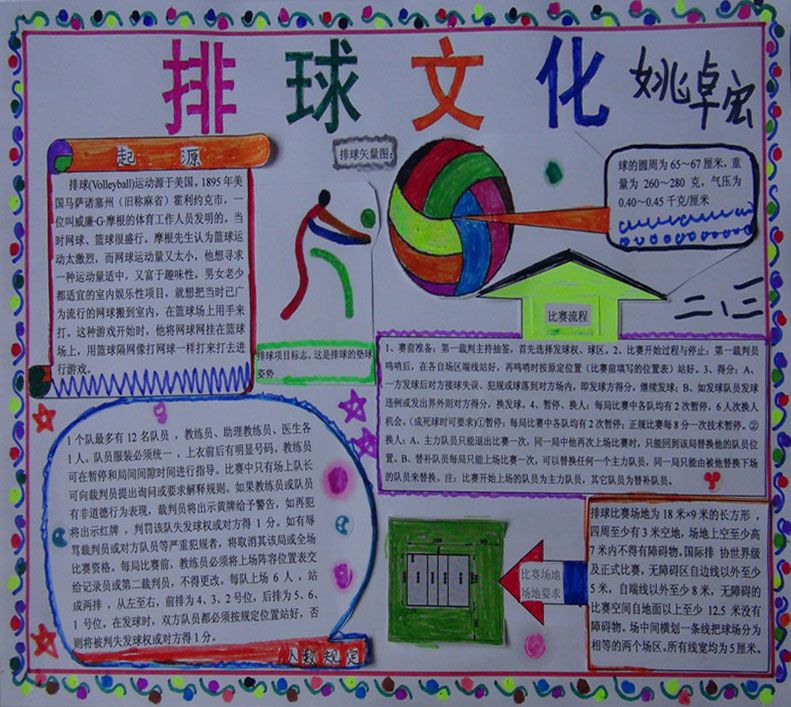 排球文化
姚卓宏
二、三
起源
排球(Volleyball)运动源于美国。1895 年美
国马萨诸塞州（旧称麻省）霍利约克市，一
位叫威廉·G·摩根的体育工作人员发明的。当
时网球、篮球很盛行。摩根先生认为篮球运
动太激烈，而网球运动量又太小，他想寻求
一种运动量适中，又富于趣味性，男女老少
都适宜的室内娱乐性项目，就想把当时已广
为流行的网球搬到室内，在篮球场上用手来
打。这种游戏开始时，他将网球网挂在篮球
场上，用篮球隔网像打网球一样打来打去进
行游戏。
排球矢量图：
球的圆周为 65～67 厘米，重
量为 260～280 克，气压为
0.40～0.45 千克/厘米
排球项目标志，这是排球的垫球
姿势
比赛流程
1、赛前准备：第一裁判主持抽签，首先选择发球权、球区。2、比赛开始过程与停止：第一裁判员
鸣哨后，在各自场区端线站好，再鸣哨时按原定位置（比赛前填写的位置表）站好。3、得分：A、
一方发球后对方接球失误、犯规或球落到对方场内，即发球方得分，继续发球；B、如发球队员发球
违例或发出界外则对方得分，换发球。4、暂停、换人：每局比赛中各队均有 2 次暂停，6 人次换人
机会。（成死球时可要求)①暂停：每局比赛中各队均有 2 次暂停；正规比赛每 8 分一次技术暂停。②
换人：A、主力队员只能退出比赛一次，同一局中他再次上场比赛时，只能回到该局替换他的队员位
置。B、替补队员每局只能上场比赛一次，可以替换任何一个主力队员，同一局只能由被他替换下场
的队员来替换。注：比赛开始上场的队员为主力队员，其它队员为替补队员。
1 个队最多有 12 名队员 ，教练员、助理教练员、医生各
1 人。队员服装必须统一 ，上衣前后有明显号码。教练员
可在暂停和局间间隙时间进行指导。比赛中只有场上队长
可向裁判员提出询问或要求解释规则。如果教练员或队员
有非道德行为表现，裁判员将出示黄牌给予警告，如再犯
将出示红牌 ，判罚该队失发球权或对方得 1 分。如有辱
骂裁判员或对方队员等严重犯规者，将取消其该局或全场
比赛资格。每局比赛前，教练员必须将上场阵容位置表交
给记录员或第二裁判员，不得更改，每队上场 6 人 ，站
成两排 ，从左至右，前排为 4、3、2 号位，后排为 5、6、
1 号位。在发球时，双方队员都必须按规定位置站好，否
则将被判失发球权或对方得 1 分。
人数规定
比赛场地
场地要求
排球比赛场地为 18 米×9 米的长方形 ，
四周至少有 3 米空地，场地上空至少高
7 米内不得有障碍物。国际排 协世界级
及正式比赛，无障碍区自边线以外至少
5 米，自端线以外至少 8 米，无障碍的
比赛空间自地面以上至少 12.5 米没有
障碍物。场中间横划一条线把球场分为
相等的两个场区。所有线宽均为 5 厘米。